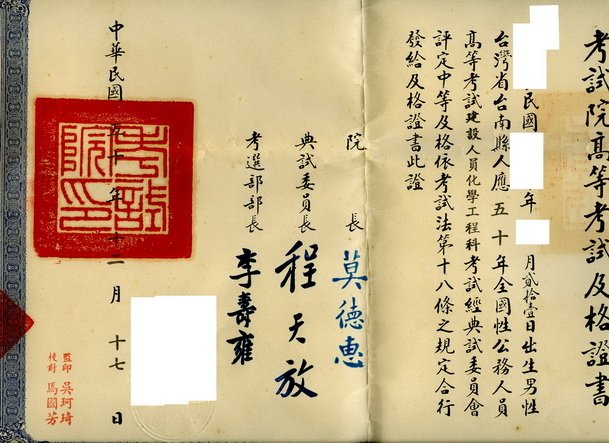 考試院高等考試及格證書
民國年月貳拾壹日出生男性
台灣省台南縣人應五十年全國性公務人員
高等考試建設人員化學工程科考試經典試委員會
評定中等及格依考試法第十八條之規定合行
發給及格證書此證
院長莫德惠
典試委員長程天放
考選部部長李壽雍
考試院印
中華民國五十年十二月十七日
監印吳珂琦
校對馬國芳